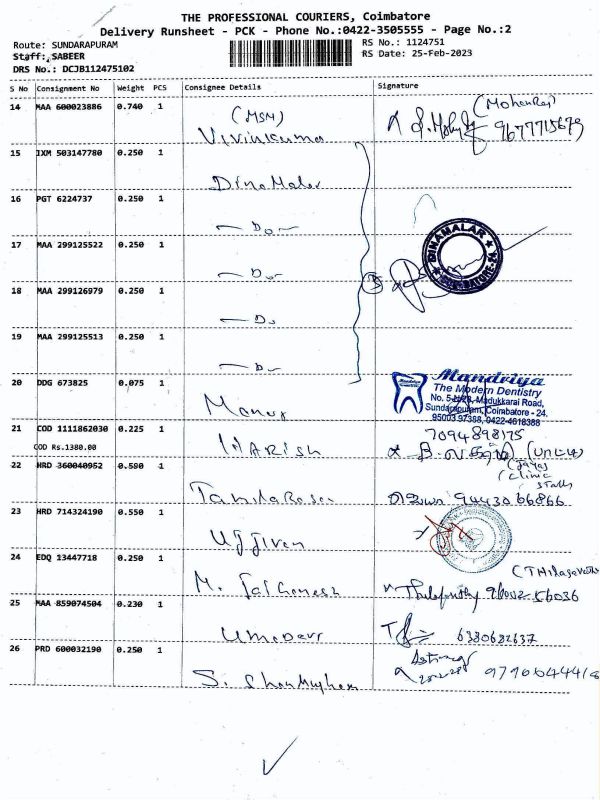 THE PROFESSIONAL COURIERS, Coimbatore
Delivery Runsheet - PCK - Phone No.:0422-3505555 - Page No.:2
Route: SUNDARAPURAM
RS No.: 1124751
Staff: SABEER
RS Date: 25-Feb-2023
DRS No.: DCJB112475102
S No Consignment No Weight PCS Consignee Details Signature
14 MAA 600023886 0.740 1 (MSM) (MohanRaj)
Vivinkumar 9677715679
15 IXM 503147780 0.250 1
DinaMalar
16 PGT 6224737 0.250 1
— Do —
DINAMALAR
COIMBATORE-24
17 MAA 299125522 0.250 1
— Do —
18 MAA 299126979 0.250 1
— Do
19 MAA 299125513 0.250 1
— Do
20 DDG 673825 0.075 1
Mandriya
The Modern Dentistry
Madukkarai Road,
Sundarapuram, Coimbatore - 24.
95003 97388, 0422-4618388
21 COD 1111862030 0.225 1 7094898175
COD Rs.1380.00 HARISH (பாட்டி)
22 HRD 360040952 0.590 1 (Jayas
Clinic
Staff)
9443066866
23 HRD 714324190 0.550 1
Ujjivan
24 EDQ 13447718 0.250 1
M. Sai Ganesh 56036
25 MAA 859074504 0.230 1
Umadevi 6380682637
26 PRD 600032190 0.250 1
S. Shanmugham